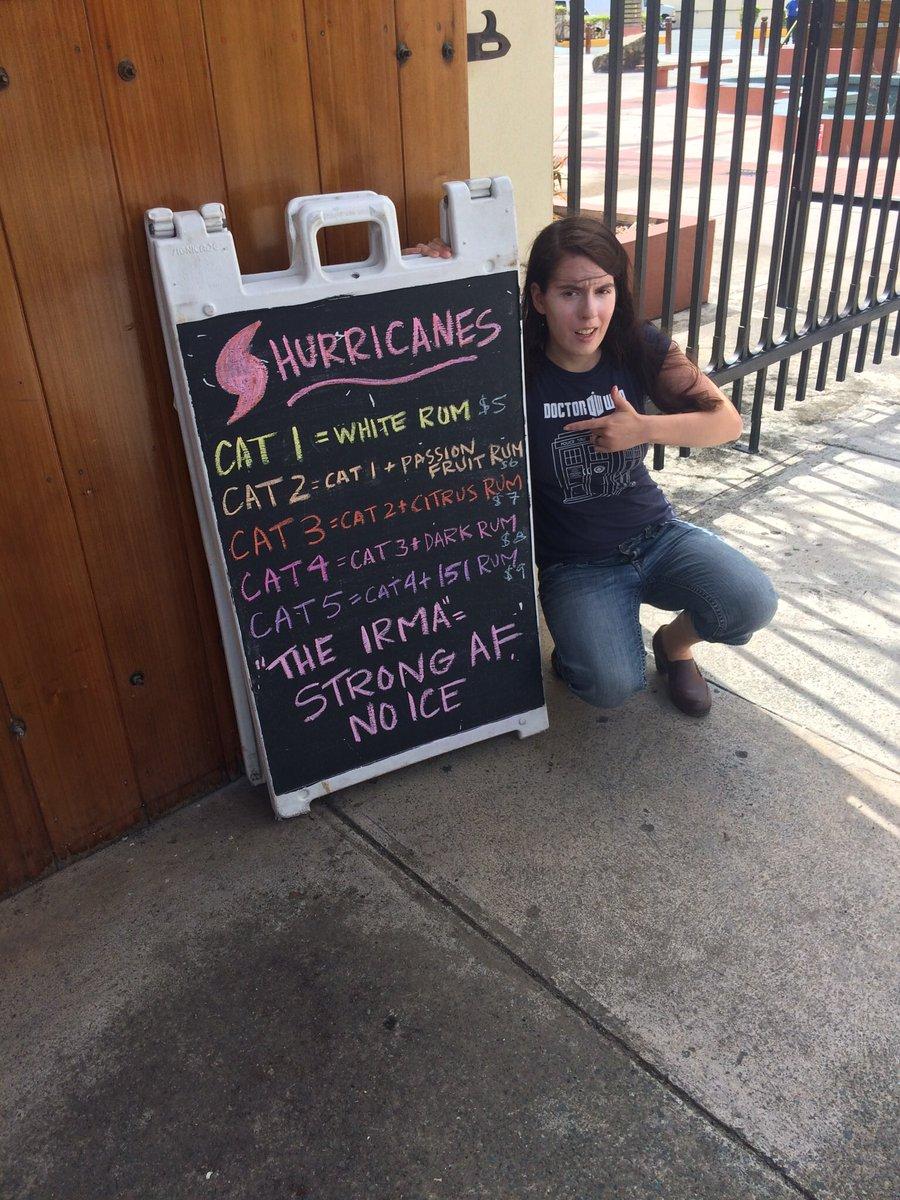 HURRICANES
CAT 1 = WHITE RUM $5
CAT 2 = CAT 1 + PASSION
FRUIT RUM
$6
CAT 3 = CAT 2 + CITRUS RUM
$7
CAT 4 = CAT 3 + DARK RUM
$8
CAT 5 = CAT 4 + 151 RUM
$9
"THE IRMA" =
STRONG AF.
NO ICE
DOCTOR WHO
POLICE BOX